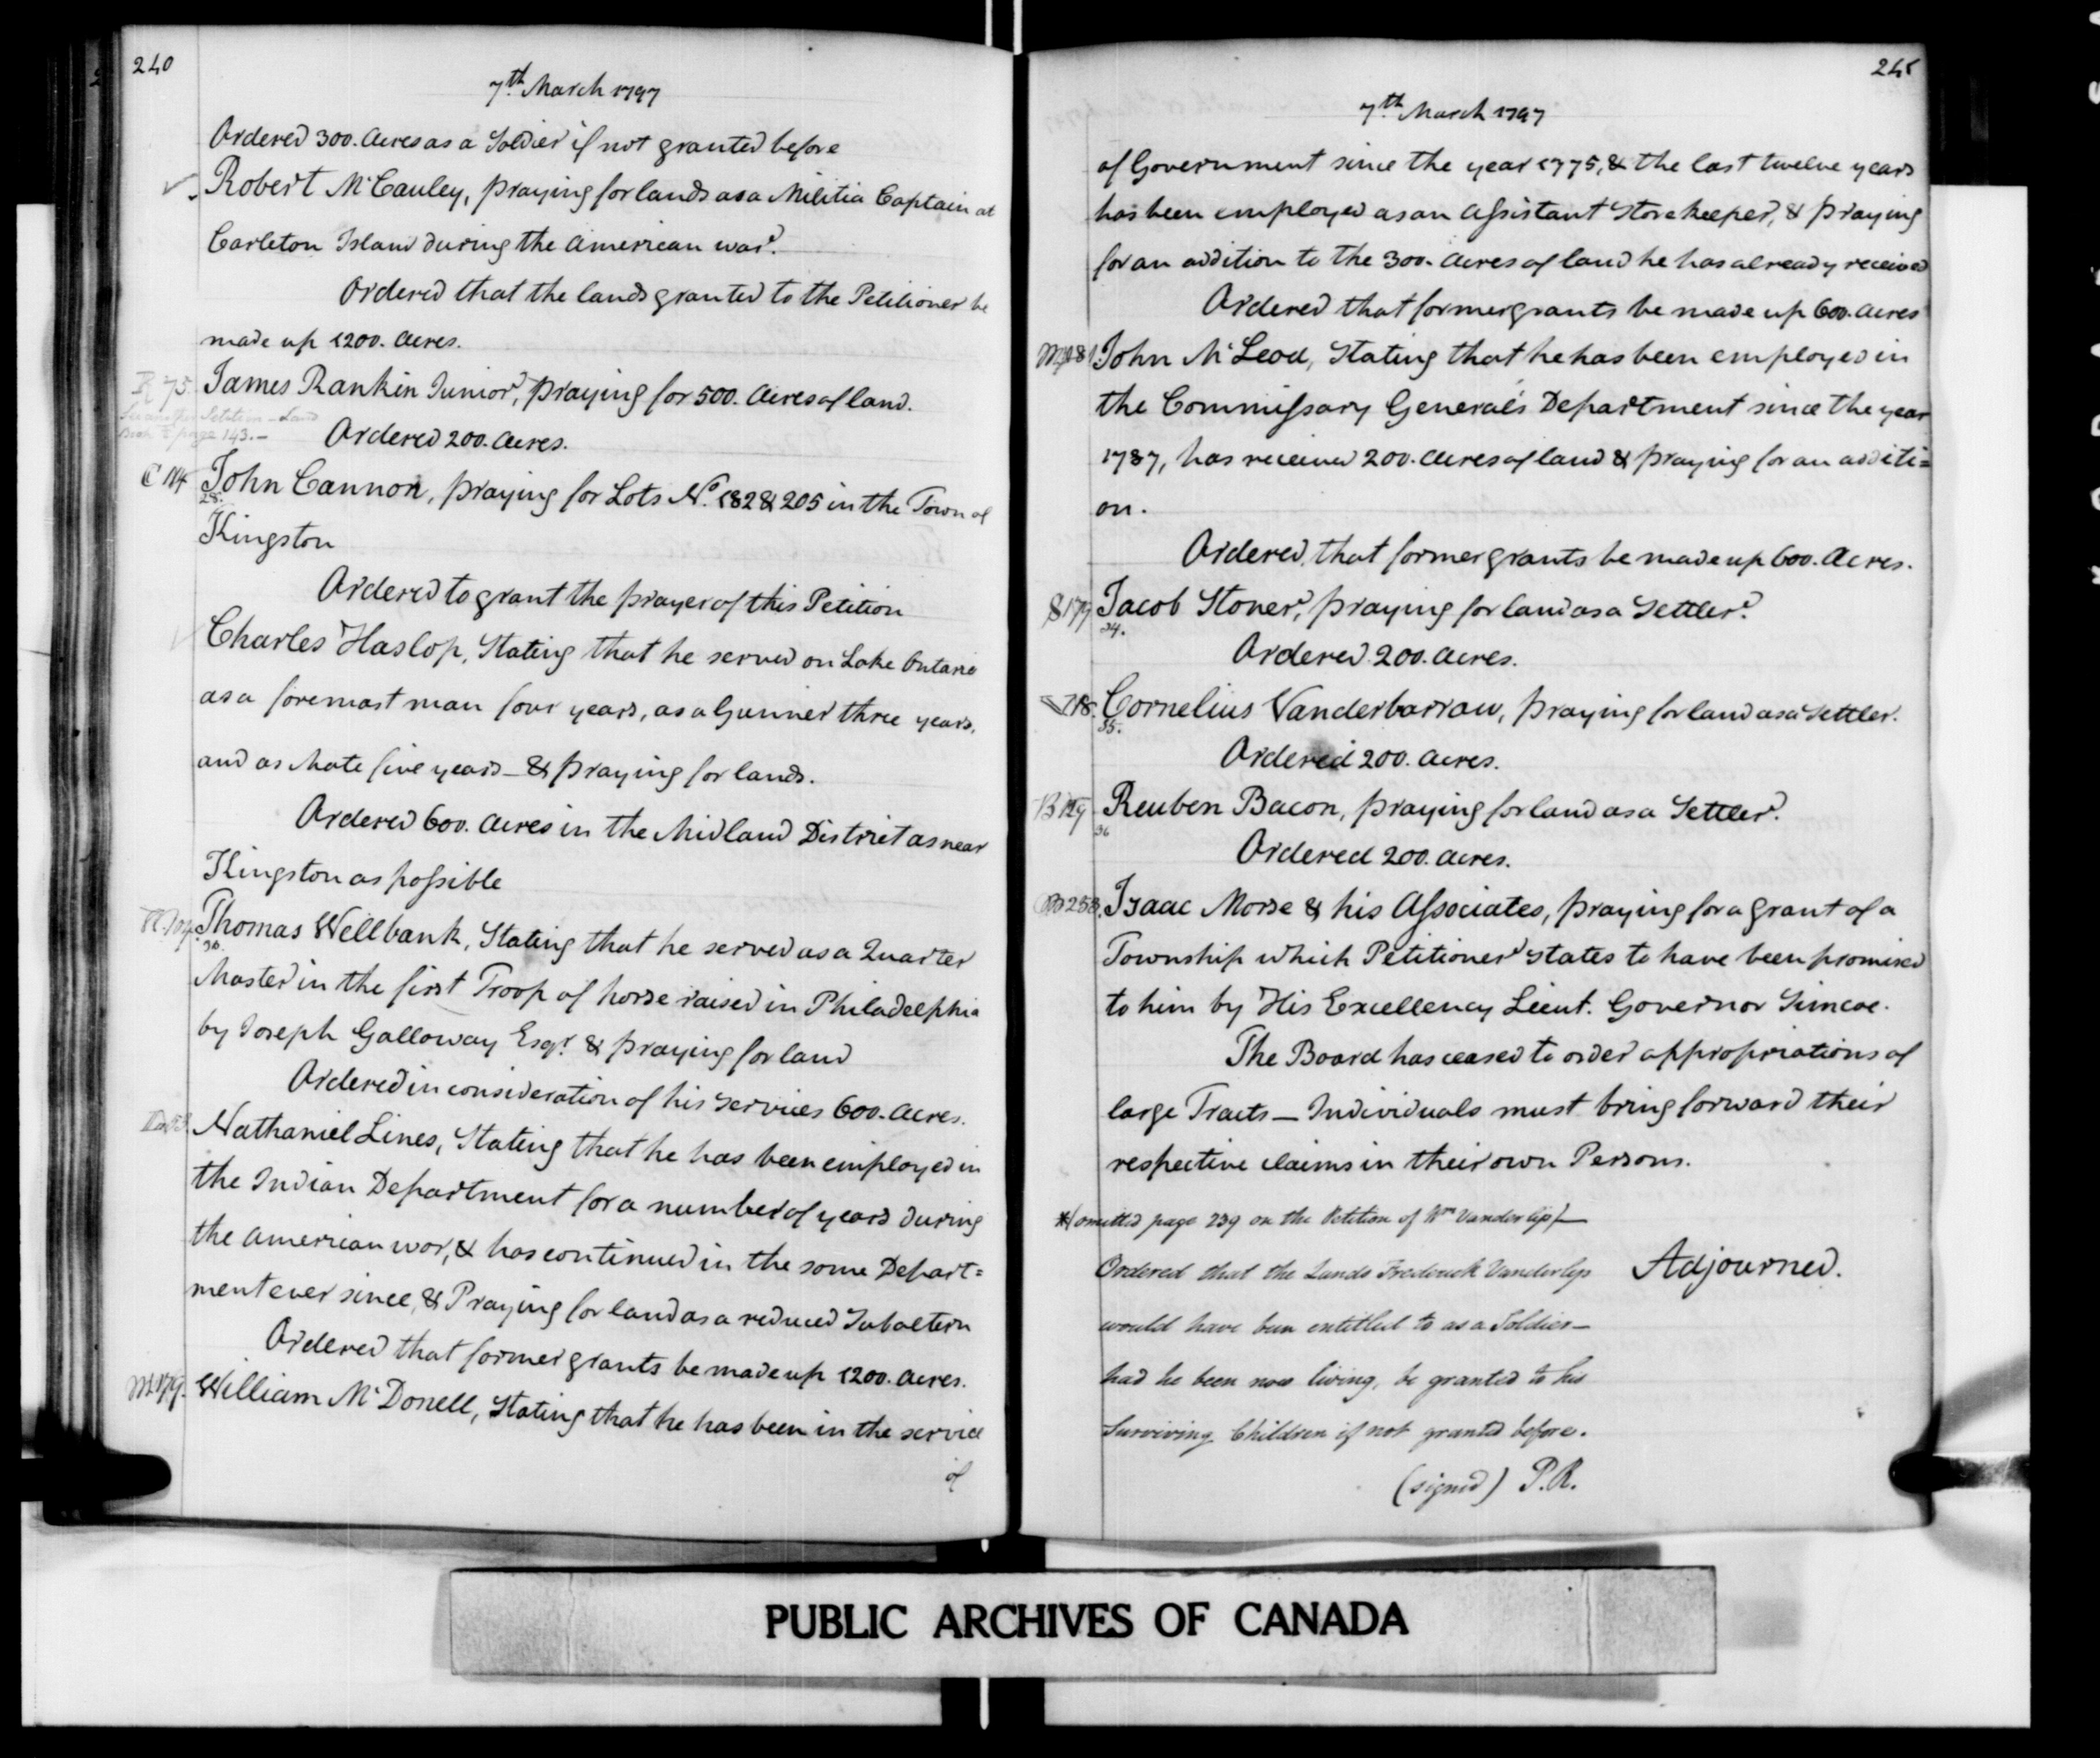 240
7th March 1797
Ordered 300. Acres as a Soldier if not granted before
Robert McCauley, praying for lands as a Militia Captain at
Carleton Island during the American war.
Ordered that the lands granted to the Petitioner be
made up 1200. Acres.
R 75. James Rankin Junior, praying for 500. Acres of land.
See another Petition - Land
Book page 143.-
Ordered 200. Acres.
C 114 John Cannon, praying for Lots No. 182 & 205 in the Town of
28.
Kingston
Ordered to grant the prayer of this Petition
Charles Haslop, Stating that he served on Lake Ontario
as a foremast man four years, as a Gunner three years,
and as Mate five years - & praying for lands.
Ordered 600. Acres in the Midland District as near
Kingston as possible
Thomas Wellbank, Stating that he served as a Quarter
30.
Master in the first Troop of horse raised in Philadelphia
by Joseph Galloway Esqr. & praying for land
Ordered in consideration of his services 600. Acres.
Nathaniel Lines, Stating that he has been employed in
the Indian Department for a number of years during
the American war, & has continued in the same Depart=
ment ever since, & Praying for land as a reduced Subaltern
Ordered that former grants be made up 1200. Acres.
M 179. William McDonell, Stating that he has been in the service
of
7th March 1797
of Government since the year 1775, & the last twelve years
has been employed as an Assistant Storekeeper, & praying
for an addition to the 300. Acres of land he has already received
Ordered that former grants be made up 600. Acres
John McLeod, Stating that he has been employed in
the Commissary General's Department since the year
1787, has received 200. Acres of land & praying for an additi=
on.
Ordered, that former grants be made up 600. Acres.
S 179 Jacob Stoner, praying for land as a Settler.
34.
Ordered 200. Acres.
Cornelius Vanderbarrow, praying for land as a Settler.
35.
Ordered 200. Acres.
B 129 Reuben Bacon, praying for land as a Settler.
36
Ordered 200. Acres.
Isaac Morse & his Associates, praying for a grant of a
Township which Petitioner states to have been promised
to him by His Excellency Lieut. Governor Simcoe.
The Board has ceased to order appropriations of
large Tracts - Individuals must bring forward their
respective claims in their own Persons.
*(omitted page 239 on the Petition of Wm Vanderlip)-
Ordered that the Lands Frederick Vanderlip
Adjourned.
would have been entitled to as a Soldier-
had he been now living, be granted to his
Surviving Children if not granted before.
(signed) P.R.
PUBLIC ARCHIVES OF CANADA